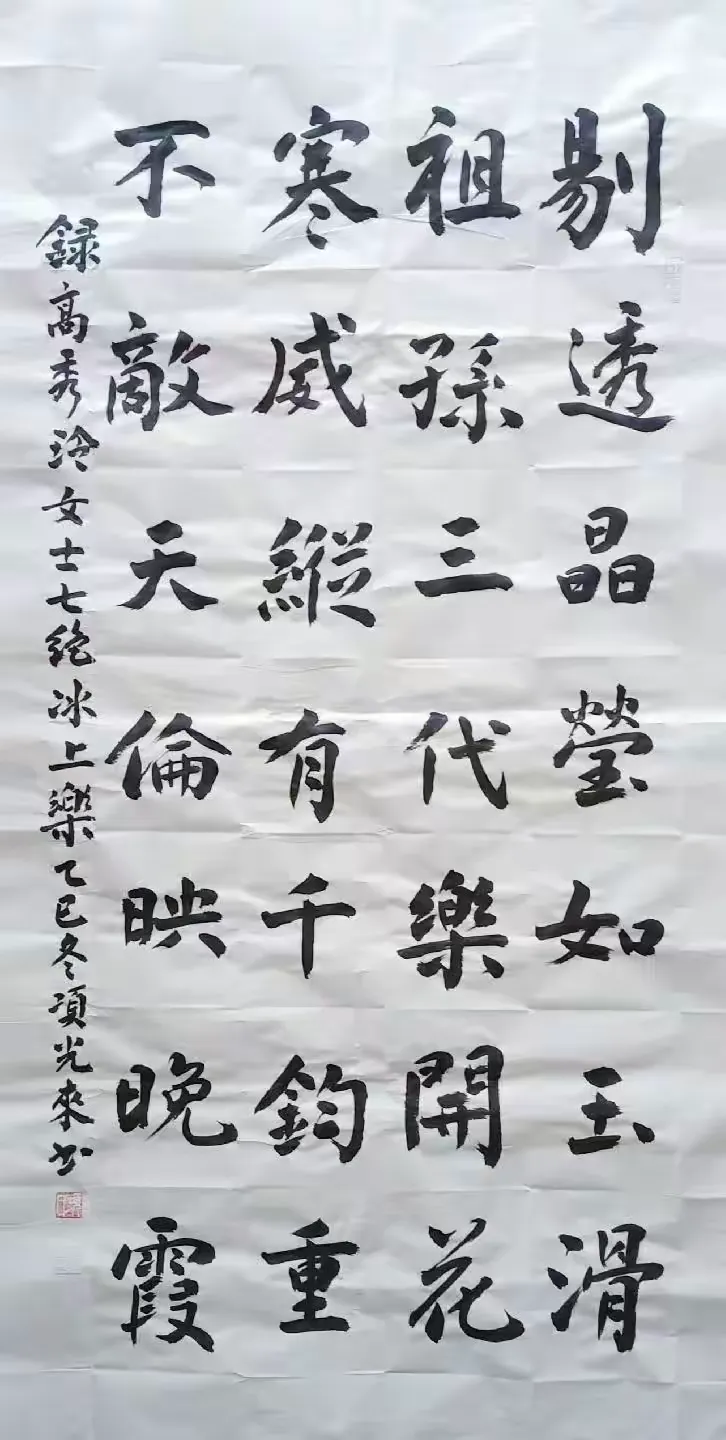 剔透晶瑩如玉滑
祖孫三代樂開花
寒威縱有千鈞重
不敵天倫映晚霞
録高秀泠女士七絶冰上樂乙巳冬項光來书